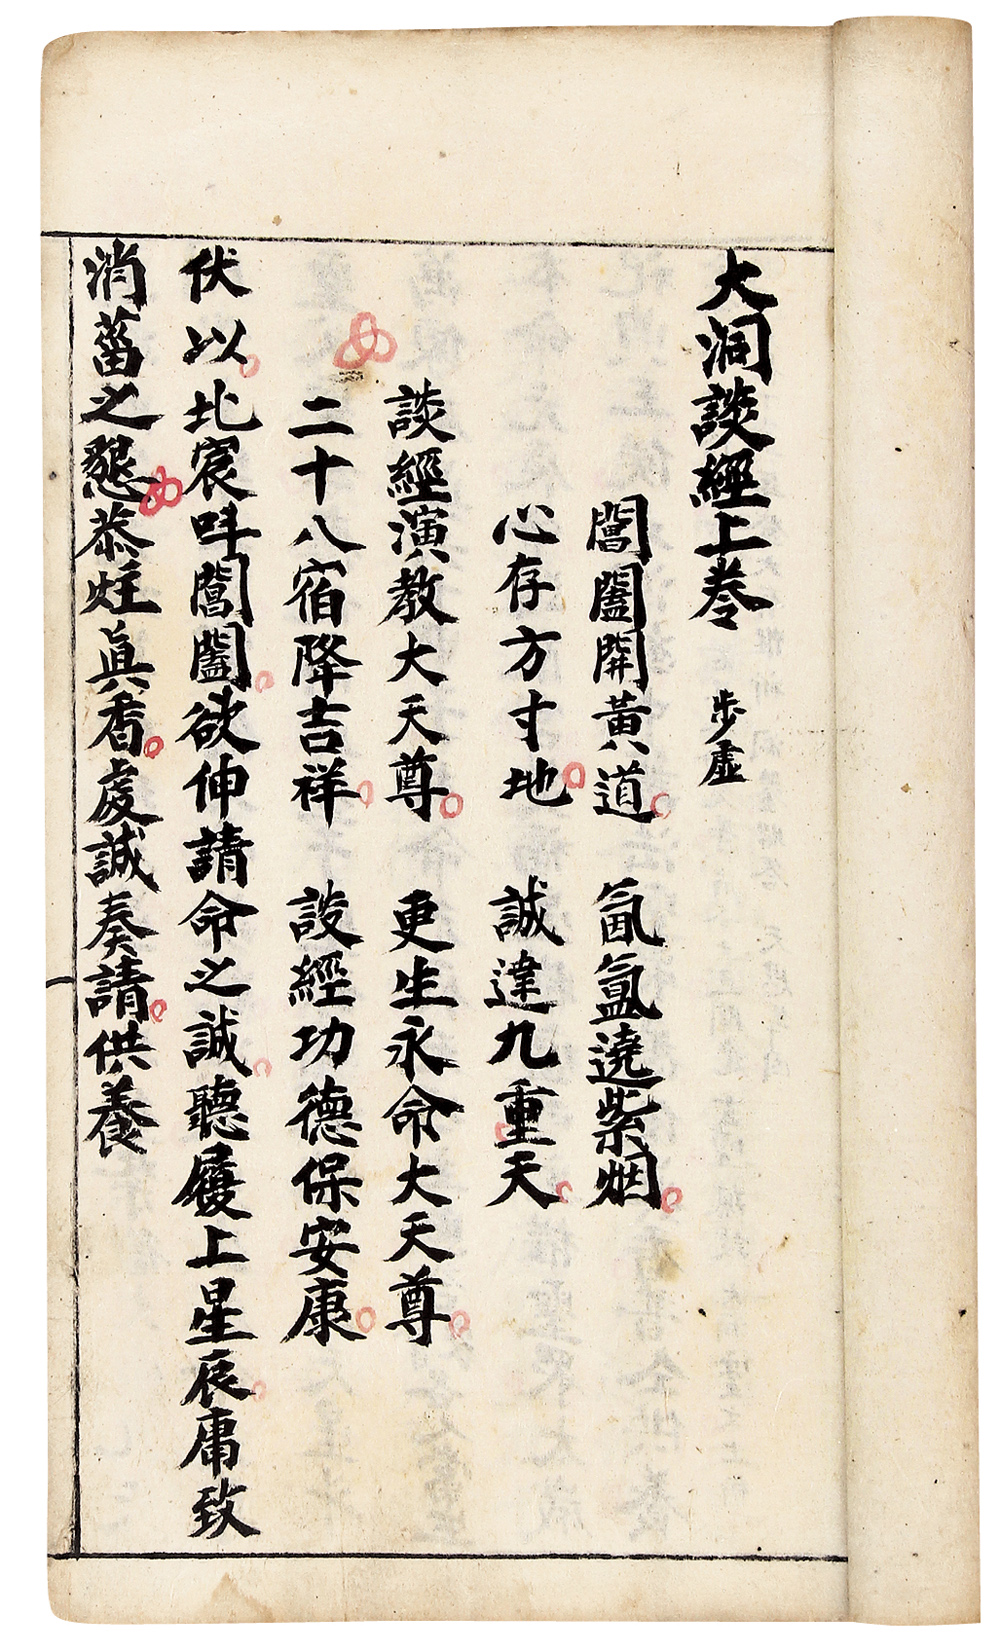 大洞談經上卷　步虛
閶闔開黃道　氤氳遶紫烟
心存方寸地　誠達九重天
談經演教大天尊　更生永命大天尊
二十八宿降吉祥　談經功德保安康
伏以北宸呌閶闔欲伸請命之誠聽履上星辰庸致
消菑之懇恭炷眞香虔誠奏請供養